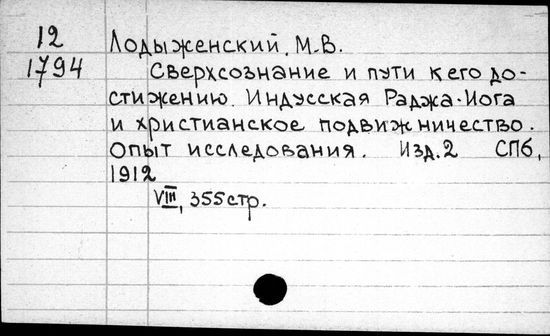 12 Лодыженский, М.В.
1794 Сверхсознание и пути к его до-
стижению. Индусская Раджа-Йога
и христианское подвижничество.
Опыт исследования. Изд.2 СПб,
1912
VIII, 355стр.